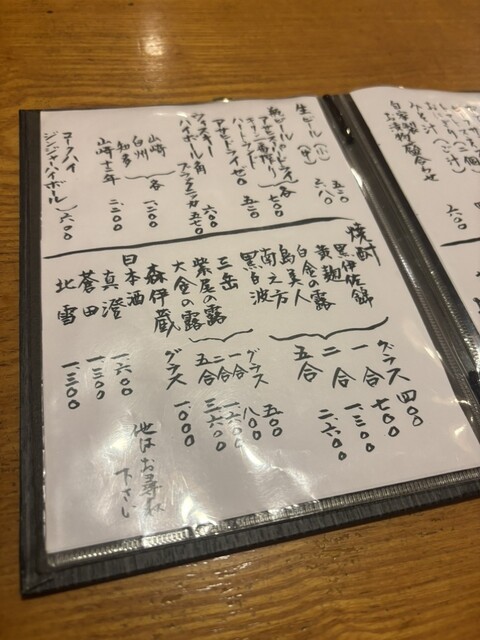 自家製
お漬物盛合わせ
みそ汁
六〇〇
生ビール(小) 五三〇
(中) 六八〇
各 七〇〇
ハートランド
アサヒドライゼロ 五三〇
ウィスキー
ハイボール 角 六〇〇
五七〇
山崎
白州
知多
各 一、二〇〇
山崎十二年 二、二〇〇
コークハイ
ジンジャーハイボール 六〇〇
焼酎
黒伊佐錦
黄麹
白金の露
島美人
南之方
黒白波
グラス 四〇〇
一合 七〇〇
二合 一、三〇〇
五合 二、六〇〇
三岳
紫尾の露
大金の露
グラス 五〇〇
一合 八〇〇
二合 一、六〇〇
五合 三、六〇〇
森伊蔵
グラス 一、〇〇〇
日本酒
真澄 一、六〇〇
蒼田 一、三〇〇
北雪 一、三〇〇
他はお尋ね
下さい